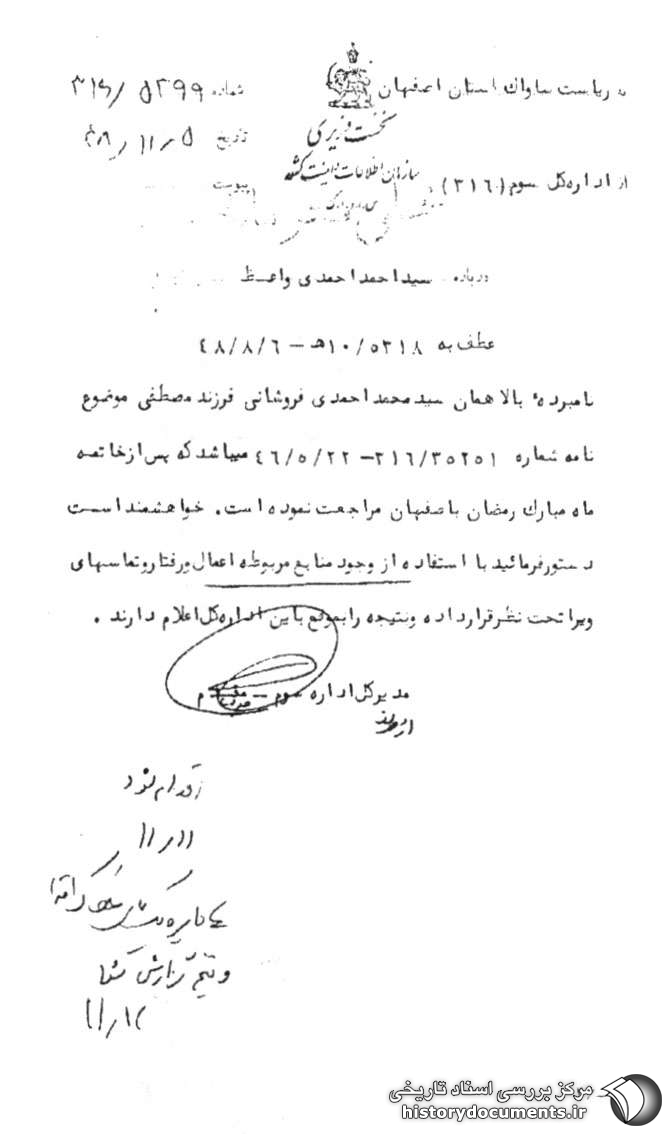 به ریاست ساواک استان اصفهان
شماره ۳۱۶/۵۳۹۹
نخست وزیری
تاریخ ۴۸/۱۱/۵
سازمان اطلاعات و امنیت کشور
از اداره کل سوم (۳۱۶)
پیوست
درباره سیداحمد احمدی واعظ
عطف به ۱۰/۵۳۱۸ هـ - ۴۸/۸/۶
نامبرده بالا همان سیدمحمد احمدی فروشانی فرزند مصطفی موضوع
نامه شماره ۳۱۶/۳۵۲۵۱ - ۴۶/۵/۲۲ میباشد که پس از خاتمه
ماه مبارک رمضان باصفهان مراجعت نموده است. خواهشمند است
دستور فرمائید با استفاده از وجود منابع مربوطه اعمال و رفتار و تماسهای
ویرا تحت نظر قرار داده و نتیجه را بموقع باین اداره کل اعلام دارند.
مدیرکل اداره سوم - مقدم
اقدام شود
۱۱/۱۱
و نتیجه گزارش کنید
مرکز بررسی اسناد تاریخی
historydocuments.ir